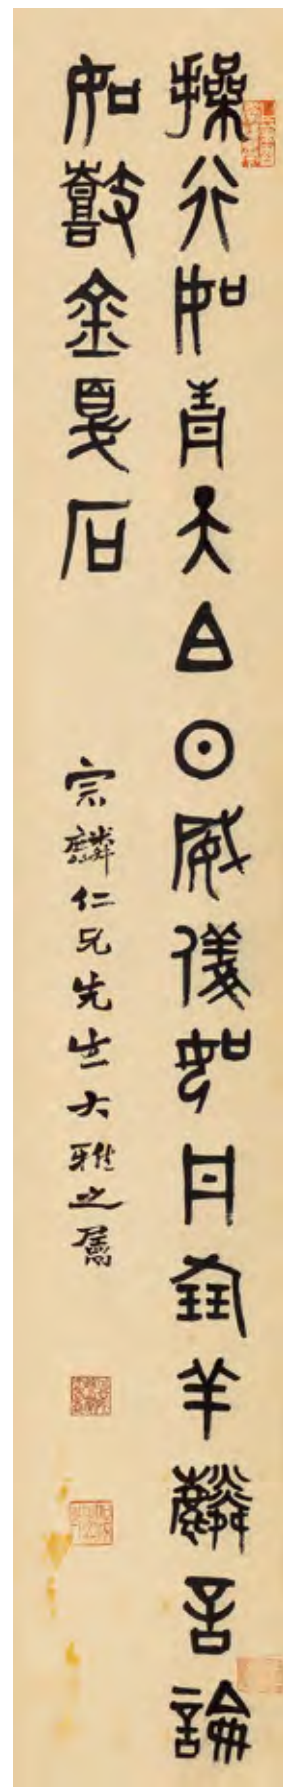 操行如青天白日威儀如丹鳳羊麟言論
如鼓金戛石
宗麟仁兄先生大雅之屬